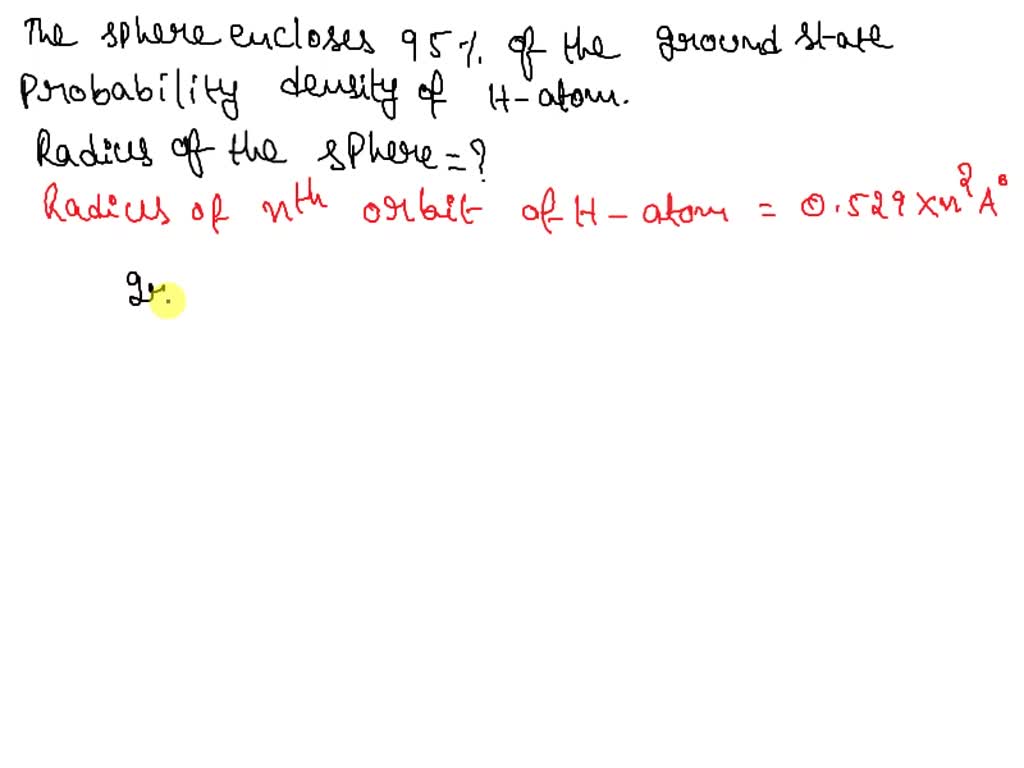 The sphere encloses 95% of the ground state
Probability density of H-atom.
Radius of the sphere=?
Radius of nth orbit of H-atom = 0.529×n² A°
gr.